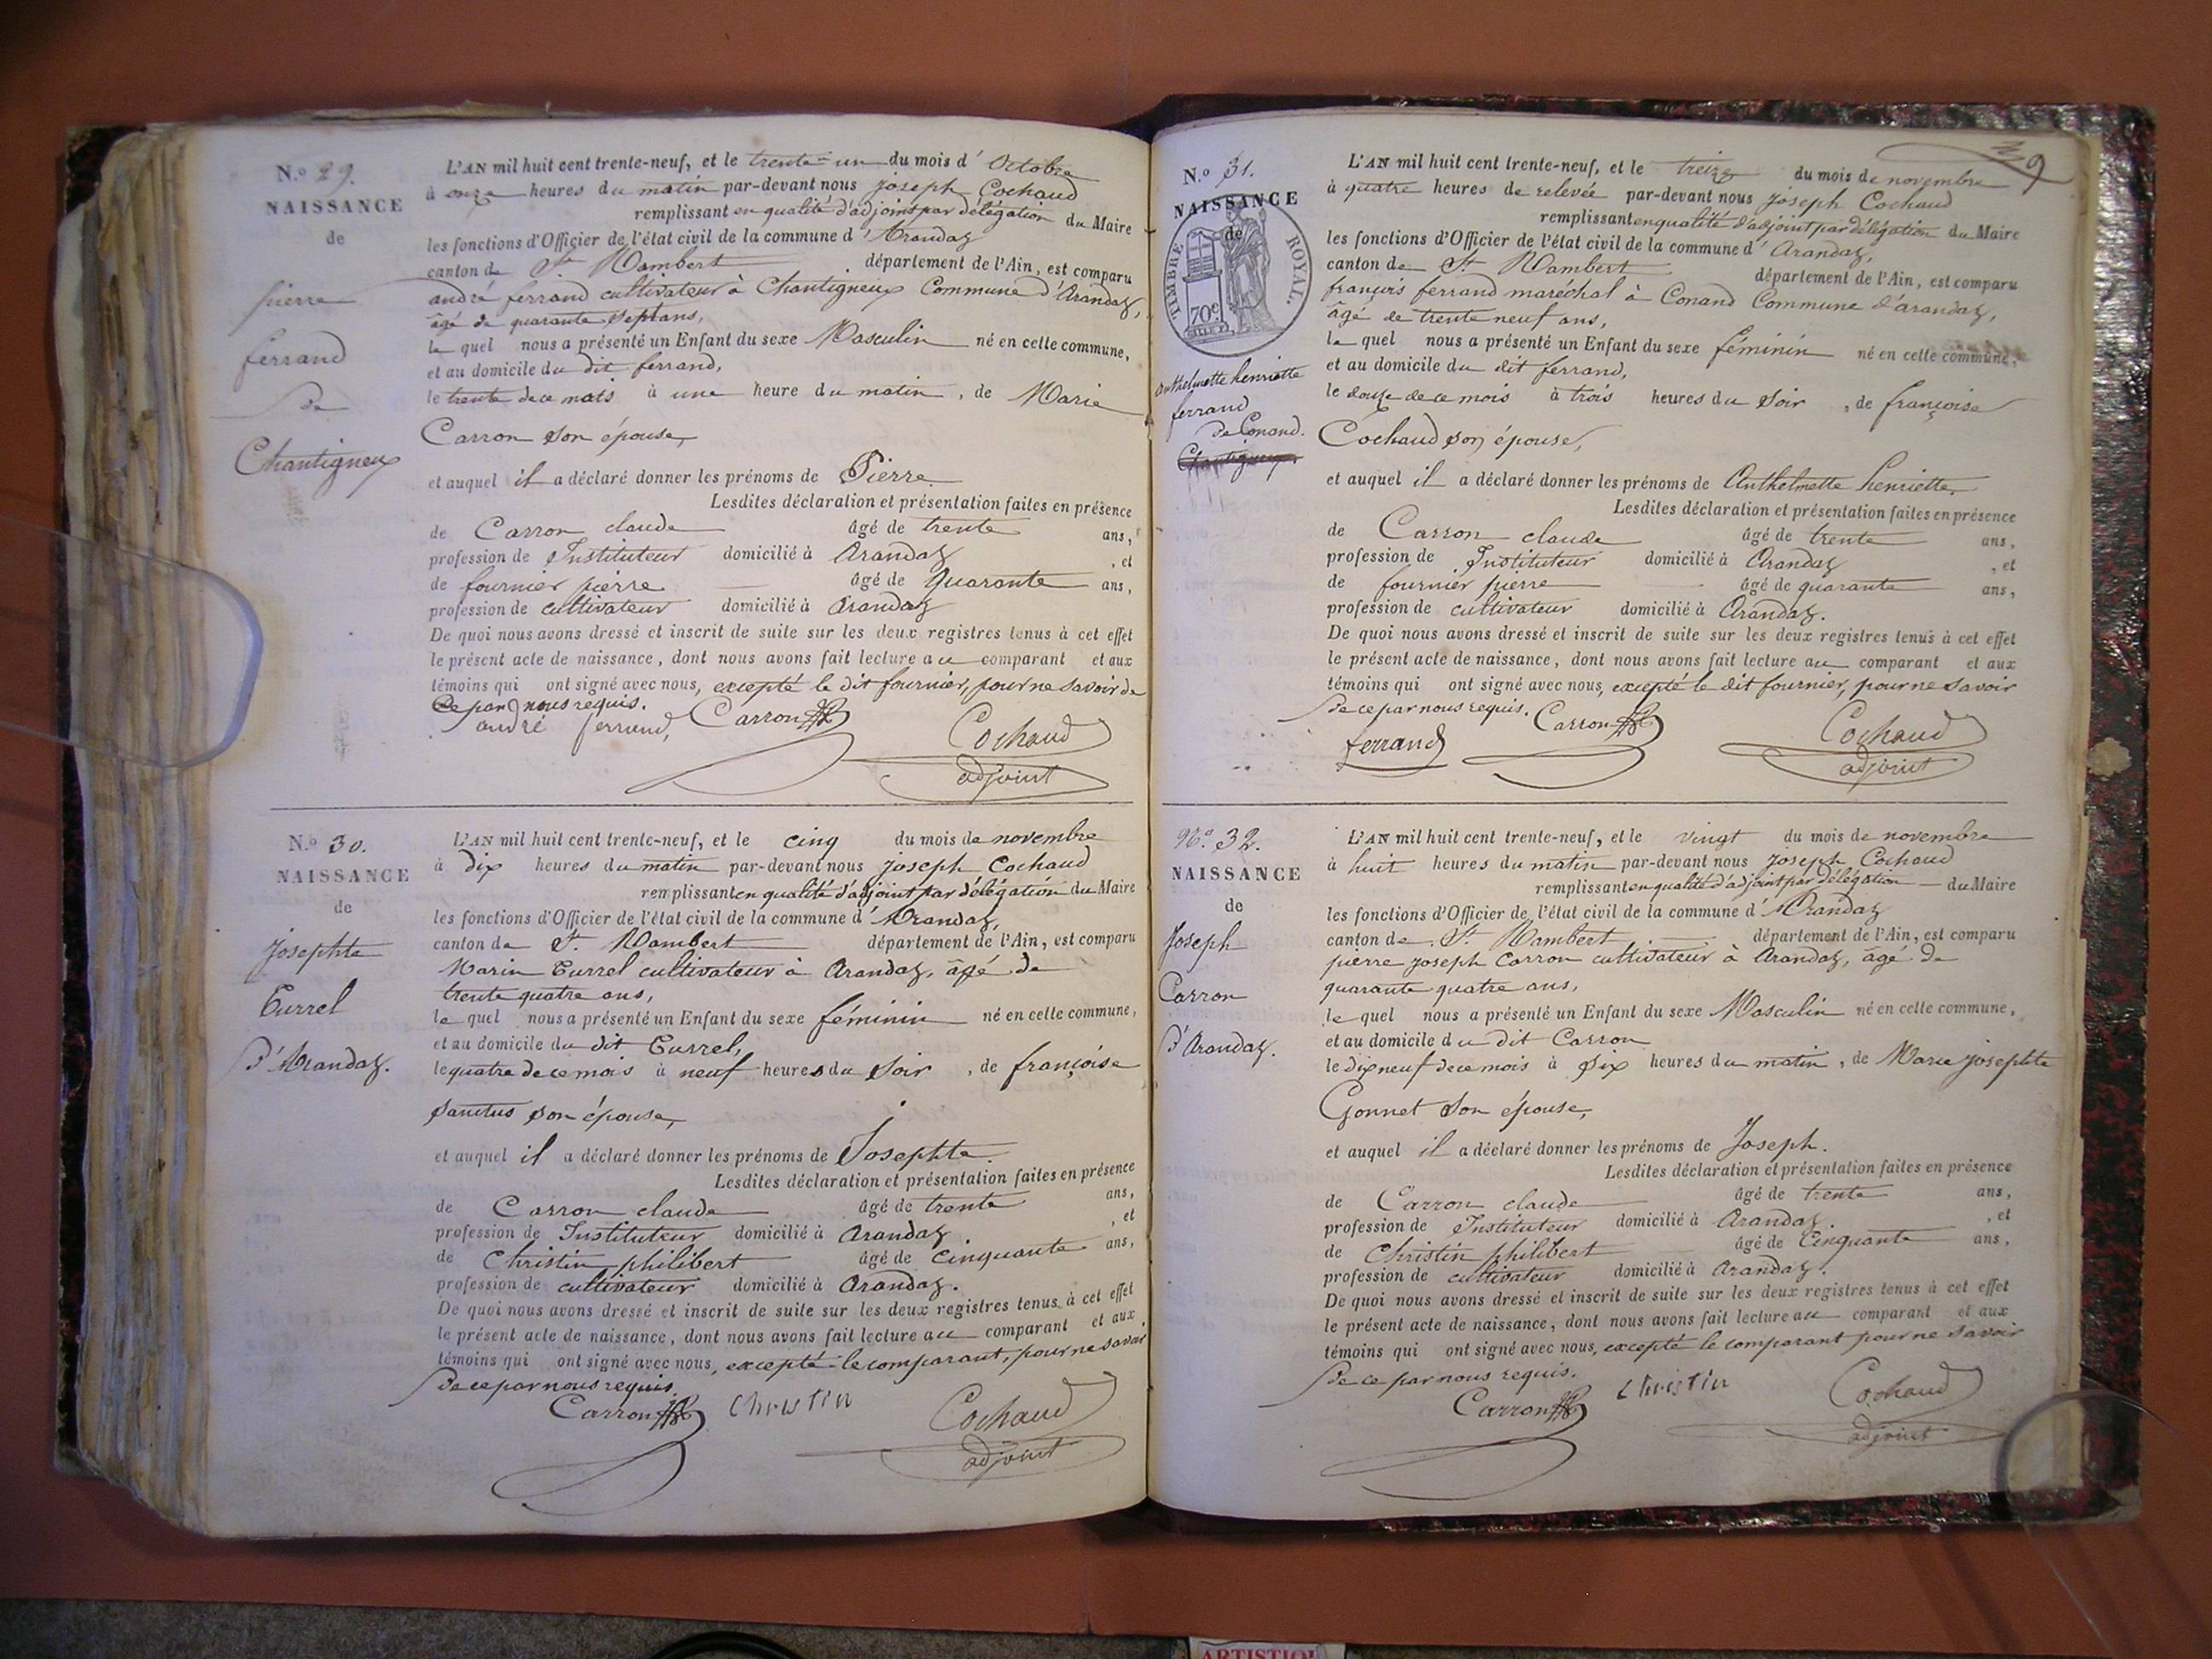 N.o 29.
NAISSANCE
de
pierre
ferrand
de
Chantigneux
L'AN mil huit cent trente-neuf, et le trente-un du mois d'Octobre
à onze heures du matin par-devant nous joseph Cochaud
remplissant en qualité d'adjoint par délégation du Maire
les fonctions d'Officier de l'état civil de la commune d'Arandaz
canton de St. Rambert département de l'Ain, est comparu
andré ferrand cultivateur à Chantigneux Commune d'Arandaz,
âgé de quarante sept ans,
le quel nous a présenté un Enfant du sexe Masculin né en cette commune,
et au domicile du dit ferrand,
le trente de ce mois à une heure du matin, de Marie
Carron son épouse,
et auquel il a déclaré donner les prénoms de Pierre
Lesdites déclaration et présentation faites en présence
de Carron claude âgé de trente ans,
profession de Instituteur domicilié à Arandaz, et
de fournier pierre âgé de Quarante ans,
profession de cultivateur domicilié à Arandaz
De quoi nous avons dressé et inscrit de suite sur les deux registres tenus à cet effet
le présent acte de naissance, dont nous avons fait lecture au comparant et aux
témoins qui ont signé avec nous, excepté le dit fournier, pour ne savoir de
ce par nous requis.
andré ferrand, Carron Cochaud
adjoint
N.o 30.
NAISSANCE
de
josephte
Curret
d'Arandaz.
L'AN mil huit cent trente-neuf, et le cinq du mois de novembre
à dix heures du matin par-devant nous joseph Cochaud
remplissant en qualité d'adjoint par délégation du Maire
les fonctions d'Officier de l'état civil de la commune d'Arandaz,
canton de St. Rambert département de l'Ain, est comparu
Marin Curret cultivateur à Arandaz, âgé de
trente quatre ans,
le quel nous a présenté un Enfant du sexe féminin né en cette commune,
et au domicile du dit Curret,
le quatre de ce mois à neuf heures du soir, de françoise
Sanctus son épouse,
et auquel il a déclaré donner les prénoms de Josephte.
Lesdites déclaration et présentation faites en présence
de Carron claude âgé de trente ans,
profession de Instituteur domicilié à Arandaz, et
de Christin philibert âgé de Cinquante ans,
profession de cultivateur domicilié à Arandaz.
De quoi nous avons dressé et inscrit de suite sur les deux registres tenus à cet effet
le présent acte de naissance, dont nous avons fait lecture au comparant et aux
témoins qui ont signé avec nous, excepté le comparant, pour ne savoir
de ce par nous requis.
Carron Christin Cochaud
adjoint
9
N.o 31.
NAISSANCE
de
TIMBRE ROYAL.
70c.
anthelmette henriette
ferrand
de Conand.
L'AN mil huit cent trente-neuf, et le treize du mois de novembre
à quatre heures de relevée par-devant nous joseph Cochaud
remplissant en qualité d'adjoint par délégation du Maire
les fonctions d'Officier de l'état civil de la commune d'Arandaz,
canton de St. Rambert département de l'Ain, est comparu
françois ferrand maréchal à Conand Commune d'arandaz,
âgé de trente neuf ans,
le quel nous a présenté un Enfant du sexe féminin né en cette commune,
et au domicile du dit ferrand,
le douze de ce mois à trois heures du soir, de françoise
Cochaud son épouse,
et auquel il a déclaré donner les prénoms de Anthelmette henriette.
Lesdites déclaration et présentation faites en présence
de Carron claude âgé de trente ans,
profession de Instituteur domicilié à Arandaz, et
de fournier pierre âgé de quarante ans,
profession de cultivateur domicilié à Arandaz.
De quoi nous avons dressé et inscrit de suite sur les deux registres tenus à cet effet
le présent acte de naissance, dont nous avons fait lecture au comparant et aux
témoins qui ont signé avec nous, excepté le dit fournier, pour ne savoir
de ce par nous requis.
ferrand Carron Cochaud
adjoint
N.o 32.
NAISSANCE
de
Joseph
Carron
d'Arandaz.
L'AN mil huit cent trente-neuf, et le vingt du mois de novembre
à huit heures du matin par-devant nous joseph Cochaud
remplissant en qualité d'adjoint par délégation du Maire
les fonctions d'Officier de l'état civil de la commune d'Arandaz
canton de St. Rambert département de l'Ain, est comparu
pierre joseph Carron cultivateur à Arandaz, âgé de
quarante quatre ans,
le quel nous a présenté un Enfant du sexe Masculin né en cette commune,
et au domicile du dit Carron
le dix neuf de ce mois à six heures du matin, de Marie josephte
Gonnet son épouse,
et auquel il a déclaré donner les prénoms de Joseph.
Lesdites déclaration et présentation faites en présence
de Carron claude âgé de trente ans,
profession de Instituteur domicilié à Arandaz., et
de Christin philibert âgé de Cinquante ans,
profession de cultivateur domicilié à Arandaz.
De quoi nous avons dressé et inscrit de suite sur les deux registres tenus à cet effet
le présent acte de naissance, dont nous avons fait lecture au comparant et aux
témoins qui ont signé avec nous, excepté le comparant pour ne savoir
de ce par nous requis.
Carron Christin Cochaud
adjoint